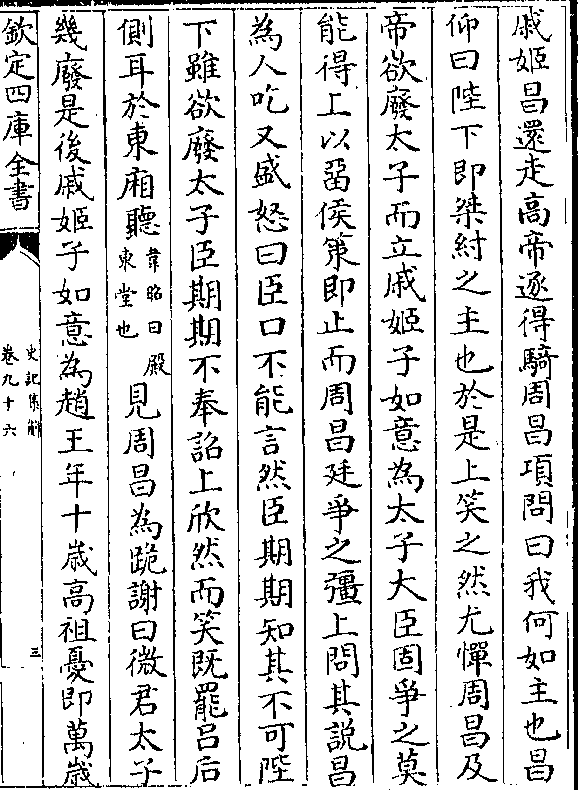 戚姬昌還走高帝逐得騎周昌項問曰我何如主也昌
仰曰陛下即桀紂之主也於是上笑之然尤憚周昌及
帝欲廢太子而立戚姬子如意為太子大臣固爭之莫
能得上以留侯策即止而周昌廷爭之彊上問其說昌
為人吃又盛怒曰臣口不能言然臣期期知其不可陛
下雖欲廢太子臣期期不奉詔上欣然而笑既罷吕后
側耳於東廂聽韋昭曰殿東堂也見周昌為跪謝曰微君太子
幾廢是後戚姬子如意為趙王年十歲高祖憂即萬歲
欽定四庫全書
史記集解
卷九十六
三